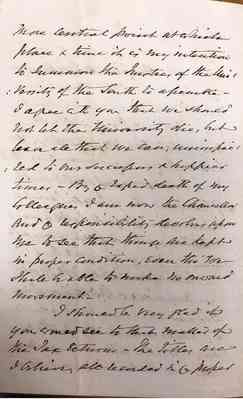 More central point at which
place & time it is my intention
to summon the Trustees of the Uni-
versity of the South to assemble -
I agree with you that we should
not let the University die, but
leave
all that we can, unimpai-
red to our successors & happier
times - By death of my
Colleagues I am now the Chancellor
and responsibility devolves upon
me to see that things are kept
in proper condition, even tho' we
able to make no onward
movement -
I should be very glad if
you would see to that matter of
the Tax Returns - The titles are
I believe, all recorded in proper